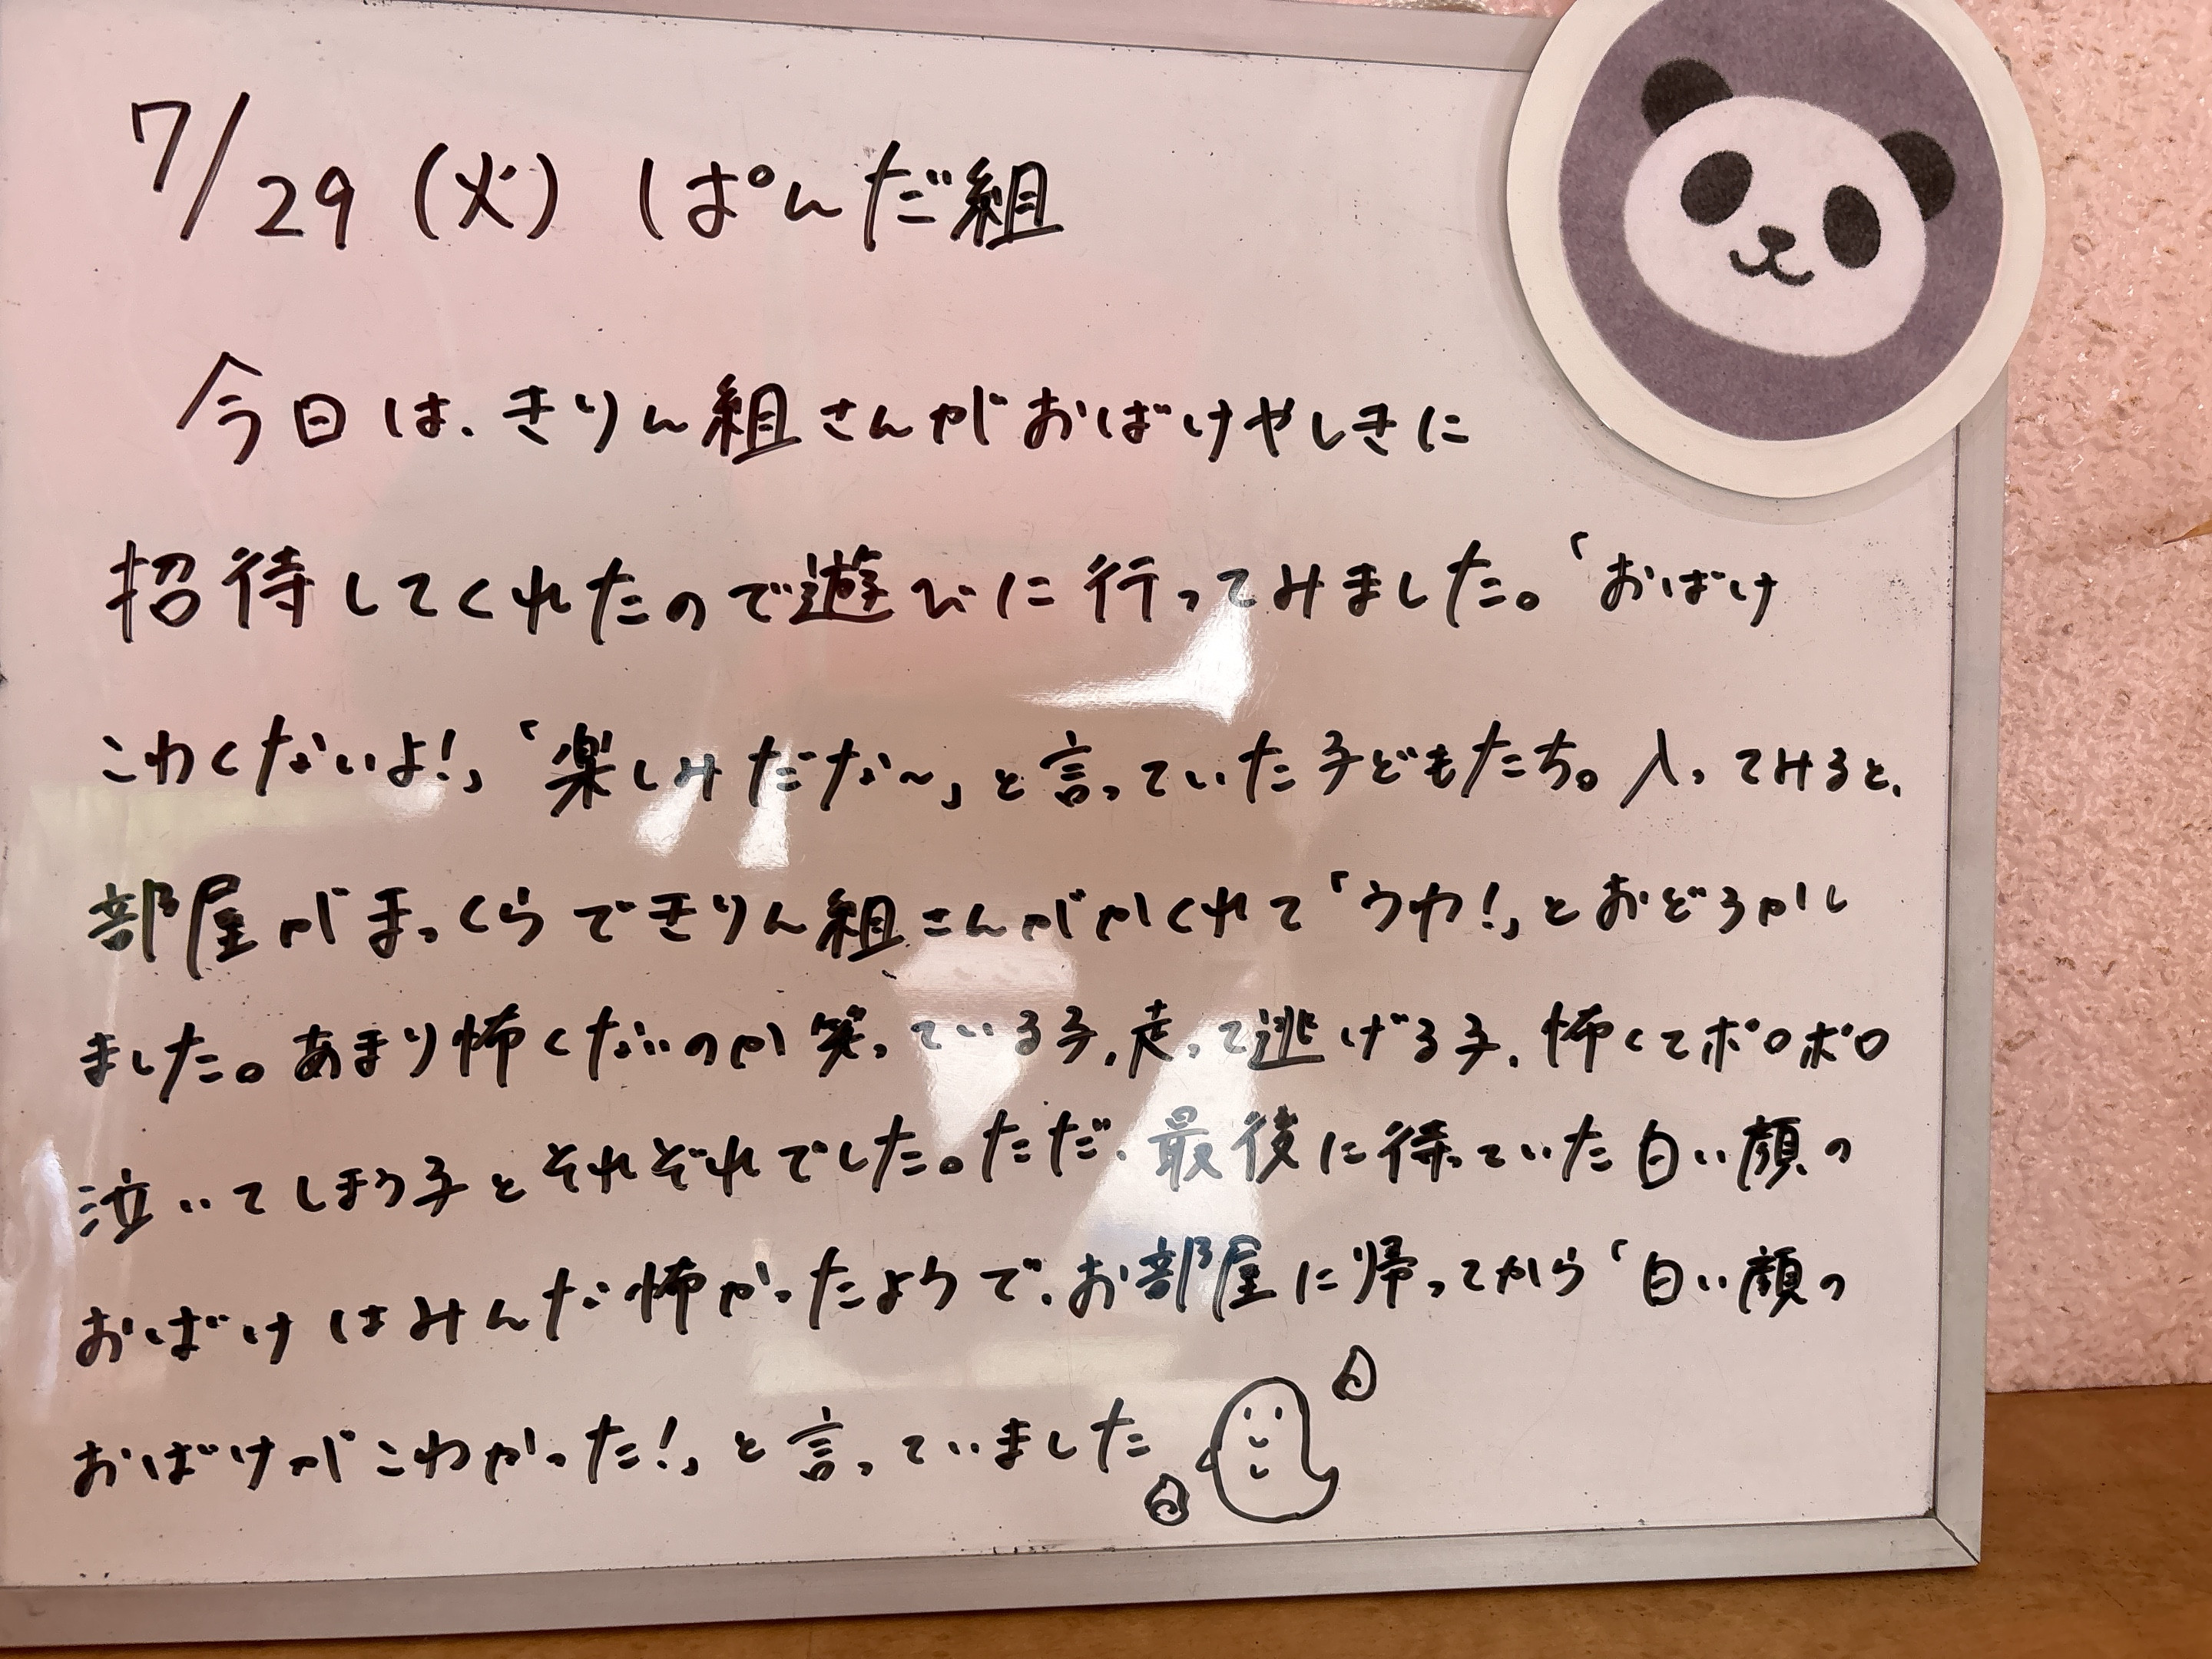 7/29 (火) ぱんだ組
今日は、きりん組さんがおばけやしきに
招待してくれたので遊びに行ってみました。「おばけ
こわくないよ!」「楽しみだな〜」と言っていた子どもたち。入ってみると、
部屋がまっくらできりん組さんがかくれて「うわ!」とおどろかし
ました。あまり怖くないのか笑っている子、走って逃げる子、怖くてポロポロ
泣いてしまう子とそれぞれでした。ただ、最後に待っていた白い顔の
おばけはみんな怖かったようで、お部屋に帰ってから「白い顔の
おばけがこわかった!」と言っていました